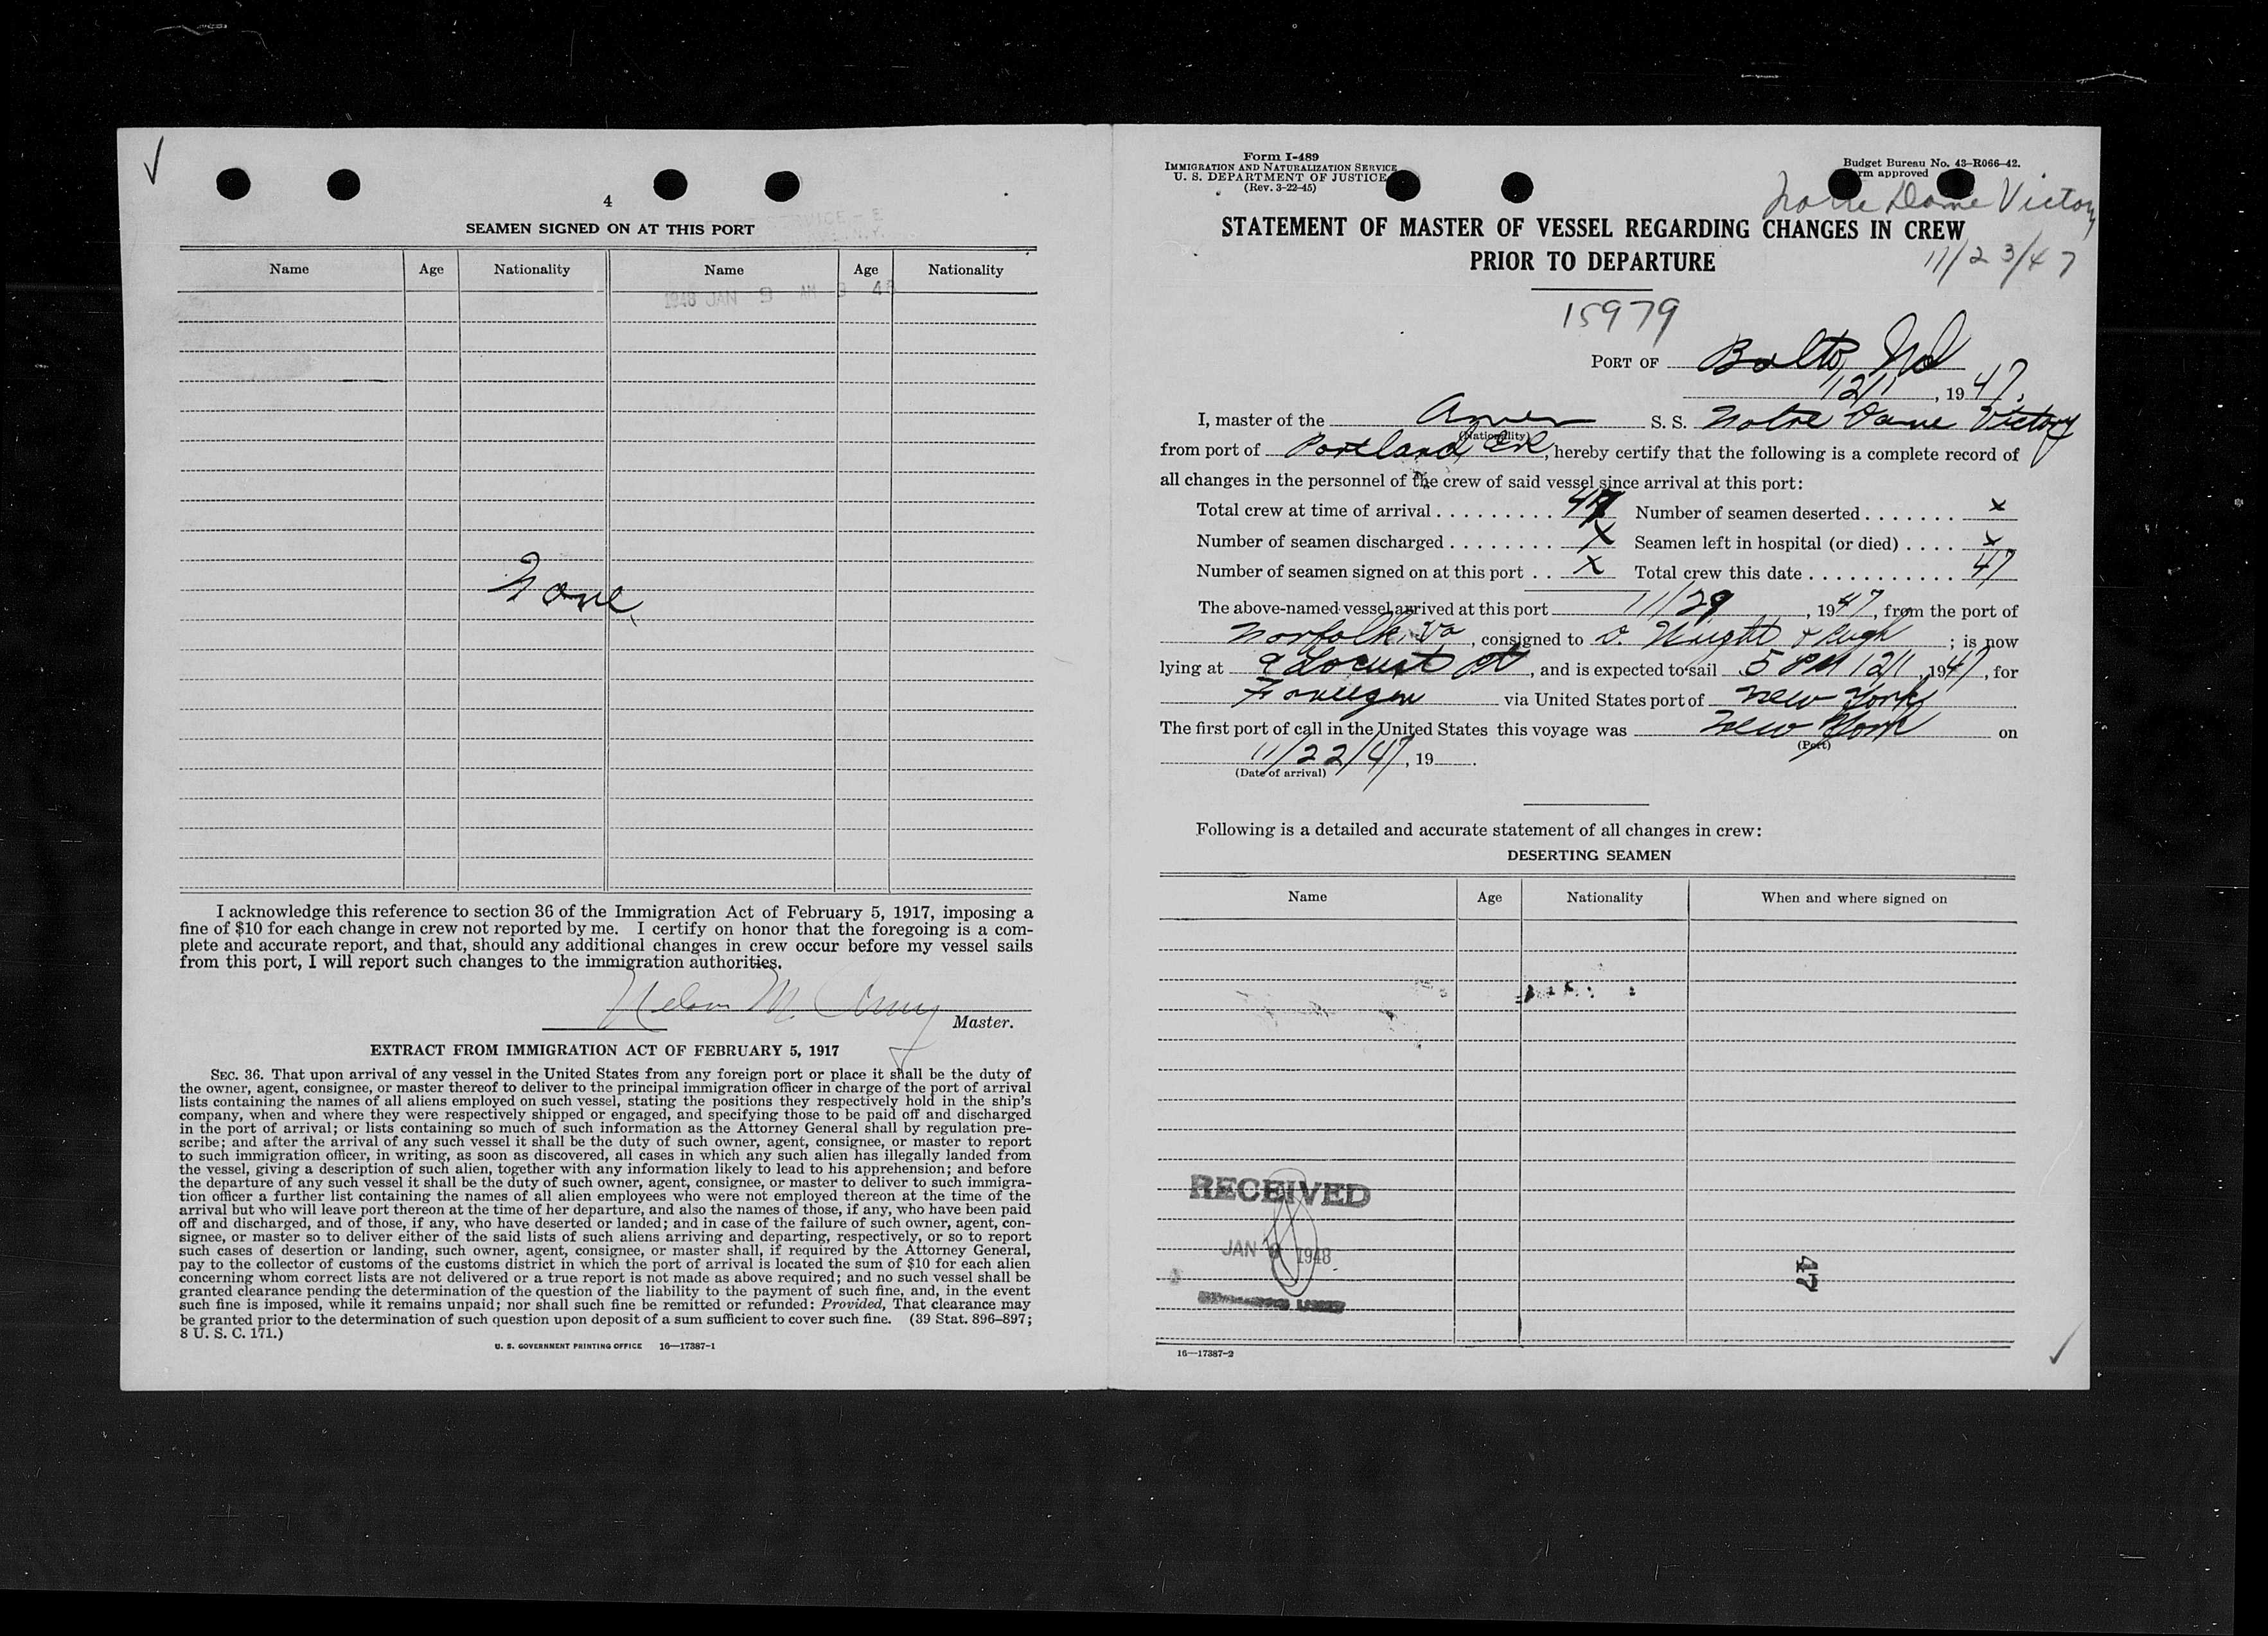 4
SEAMEN SIGNED ON AT THIS PORT
Name Age Nationality Name Age Nationality
1948 JAN 9 AM 9 4
None
I acknowledge this reference to section 36 of the Immigration Act of February 5, 1917, imposing a
fine of $10 for each change in crew not reported by me. I certify on honor that the foregoing is a com-
plete and accurate report, and that, should any additional changes in crew occur before my vessel sails
from this port, I will report such changes to the immigration authorities.
Nelson M.
Master.
EXTRACT FROM IMMIGRATION ACT OF FEBRUARY 5, 1917
SEC. 36. That upon arrival of any vessel in the United States from any foreign port or place it shall be the duty of
the owner, agent, consignee, or master thereof to deliver to the principal immigration officer in charge of the port of arrival
lists containing the names of all aliens employed on such vessel, stating the positions they respectively hold in the ship's
company, when and where they were respectively shipped or engaged, and specifying those to be paid off and discharged
in the port of arrival; or lists containing so much of such information as the Attorney General shall by regulation pre-
scribe; and after the arrival of any such vessel it shall be the duty of such owner, agent, consignee, or master to report
to such immigration officer, in writing, as soon as discovered, all cases in which any such alien has illegally landed from
the vessel, giving a description of such alien, together with any information likely to lead to his apprehension; and before
the departure of any such vessel it shall be the duty of such owner, agent, consignee, or master to deliver to such immigra-
tion officer a further list containing the names of all alien employees who were not employed thereon at the time of the
arrival but who will leave port thereon at the time of her departure, and also the names of those, if any, who have been paid
off and discharged, and of those, if any, who have deserted or landed; and in case of the failure of such owner, agent, con-
signee, or master so to deliver either of the said lists of such aliens arriving and departing, respectively, or so to report
such cases of desertion or landing, such owner, agent, consignee, or master shall, if required by the Attorney General,
pay to the collector of customs of the customs district in which the port of arrival is located the sum of $10 for each alien
concerning whom correct lists are not delivered or a true report is not made as above required; and no such vessel shall be
granted clearance pending the determination of the question of the liability to the payment of such fine, and, in the event
such fine is imposed, while it remains unpaid; nor shall such fine be remitted or refunded: Provided, That clearance may
be granted prior to the determination of such question upon deposit of a sum sufficient to cover such fine. (39 Stat. 896-897;
8 U. S. C. 171.)
U. S. GOVERNMENT PRINTING OFFICE 16—17387-1
Form I-489
IMMIGRATION AND NATURALIZATION SERVICE
U. S. DEPARTMENT OF JUSTICE
(Rev. 3-22-45)
Budget Bureau No. 43-R066-42.
approved
Notre Dame Victory
STATEMENT OF MASTER OF VESSEL REGARDING CHANGES IN CREW
PRIOR TO DEPARTURE
11/23/47
15979
PORT OF Balto, Md
12/1, 1947.
I, master of the Amer S. S. Notre Dame Victory
(Nationality)
from port of Portland, hereby certify that the following is a complete record of
all changes in the personnel of the crew of said vessel since arrival at this port:
Total crew at time of arrival 47 Number of seamen deserted x
Number of seamen discharged x Seamen left in hospital (or died) x
Number of seamen signed on at this port x Total crew this date 47
The above-named vessel arrived at this port 11/29, 1947, from the port of
Norfolk, Va, consigned to & Pugh; is now
lying at 9 Locust Pt, and is expected to sail 5 PM 12/1, 1947, for
Foreign via United States port of New York
The first port of call in the United States this voyage was New York on
(Port)
11/22/47, 19
(Date of arrival)
Following is a detailed and accurate statement of all changes in crew:
DESERTING SEAMEN
Name Age Nationality When and where signed on
RECEIVED
JAN 9 1948
47
16—17387-2